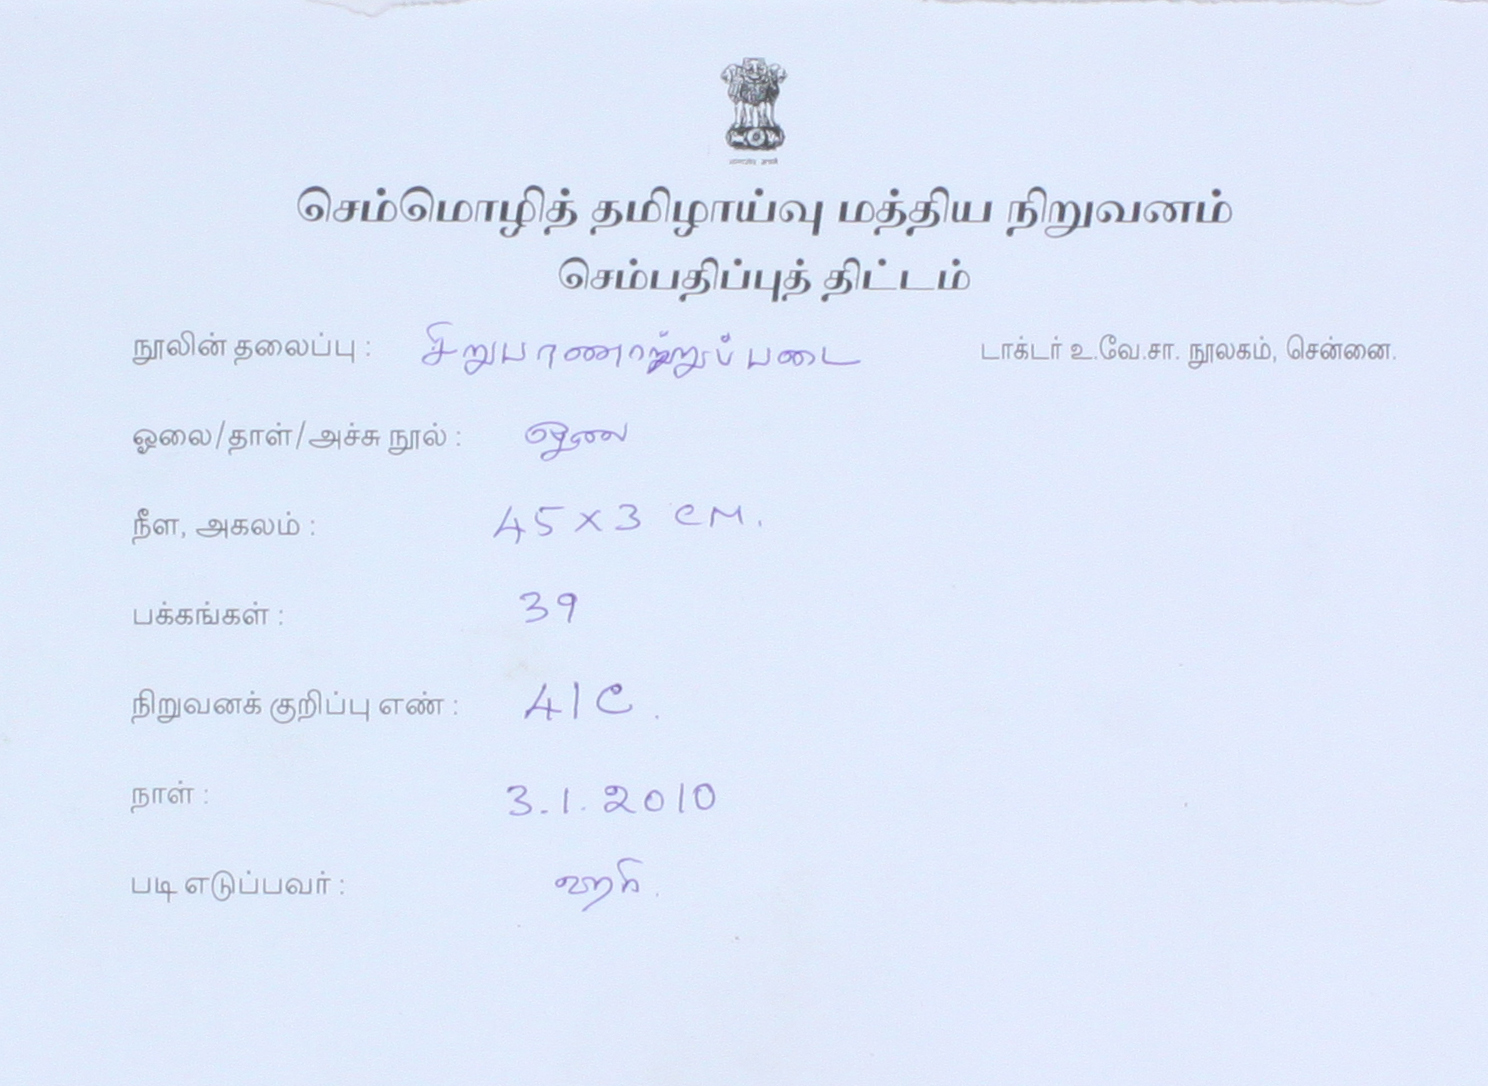 செம்மொழித் தமிழாய்வு மத்திய நிறுவனம்
செம்பதிப்புத் திட்டம்
நூலின் தலைப்பு : சிறுபாணாற்றுப்படை டாக்டர் உ.வே.சா. நூலகம், சென்னை.
ஓலை/தாள்/அச்சு நூல் : ஓலை
நீள, அகலம் : 45 x 3 CM.
பக்கங்கள் : 39
நிறுவனக் குறிப்பு எண் : 41C.
நாள் : 3.1.2010
படி எடுப்பவர் : ஹரி.